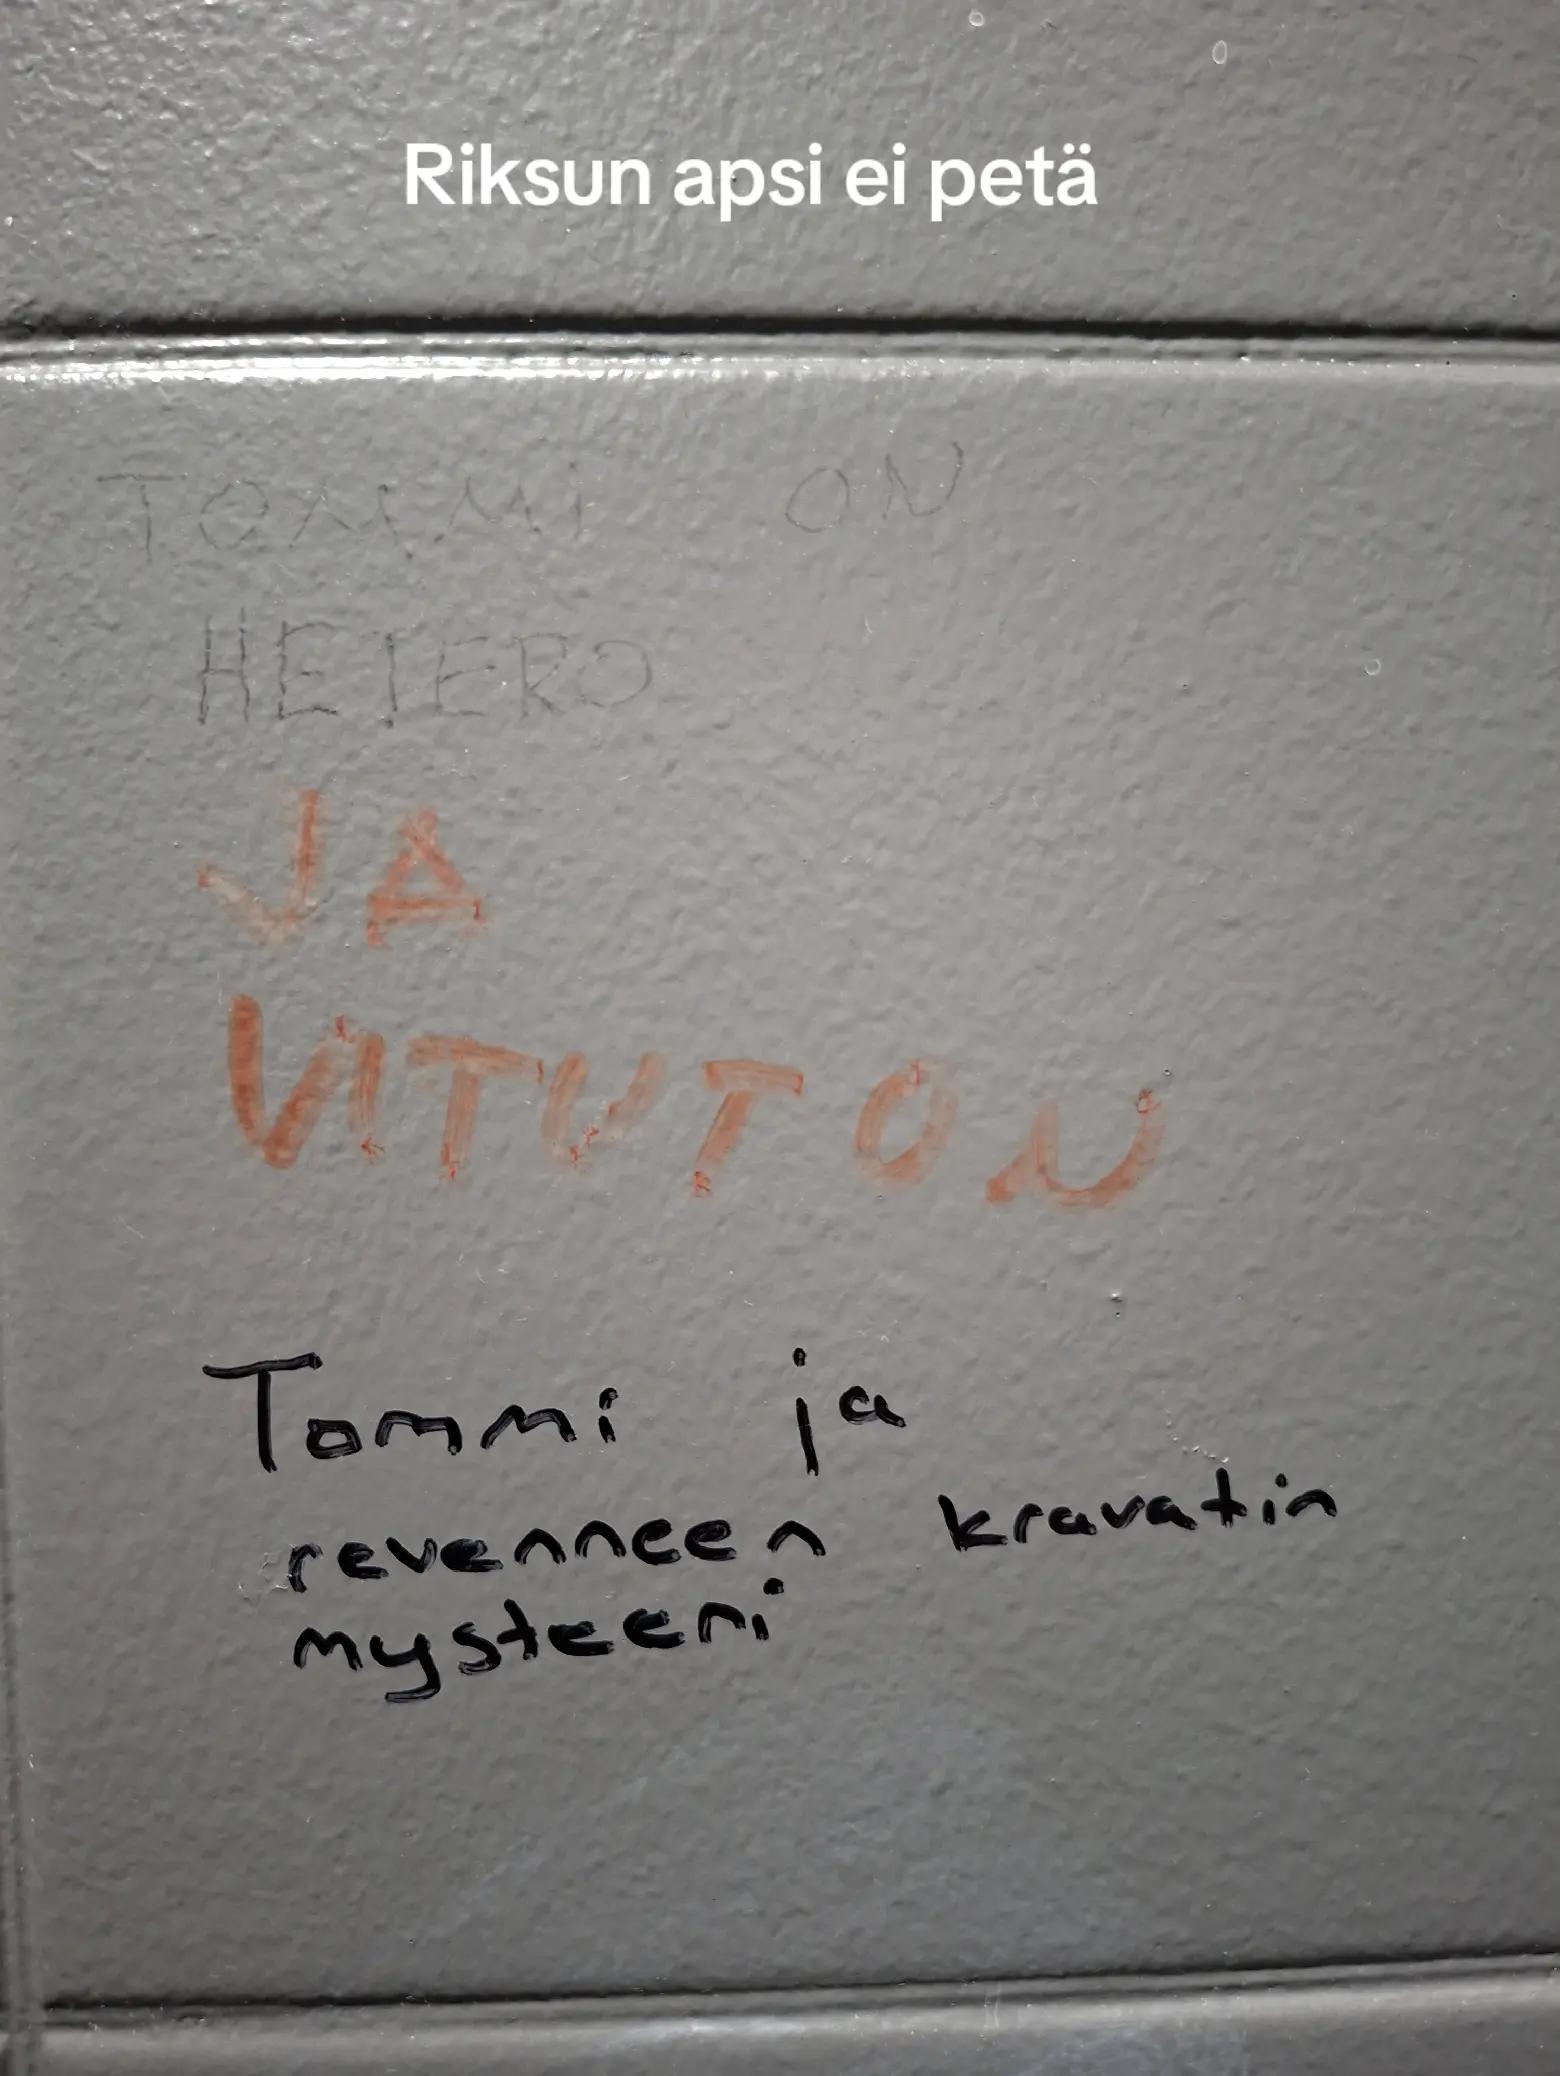 Riksun apsi ei petä
TOMMI ON
HETERO
JA
VITUTON
Tommi ja
revenneen kravatin
mysteeri